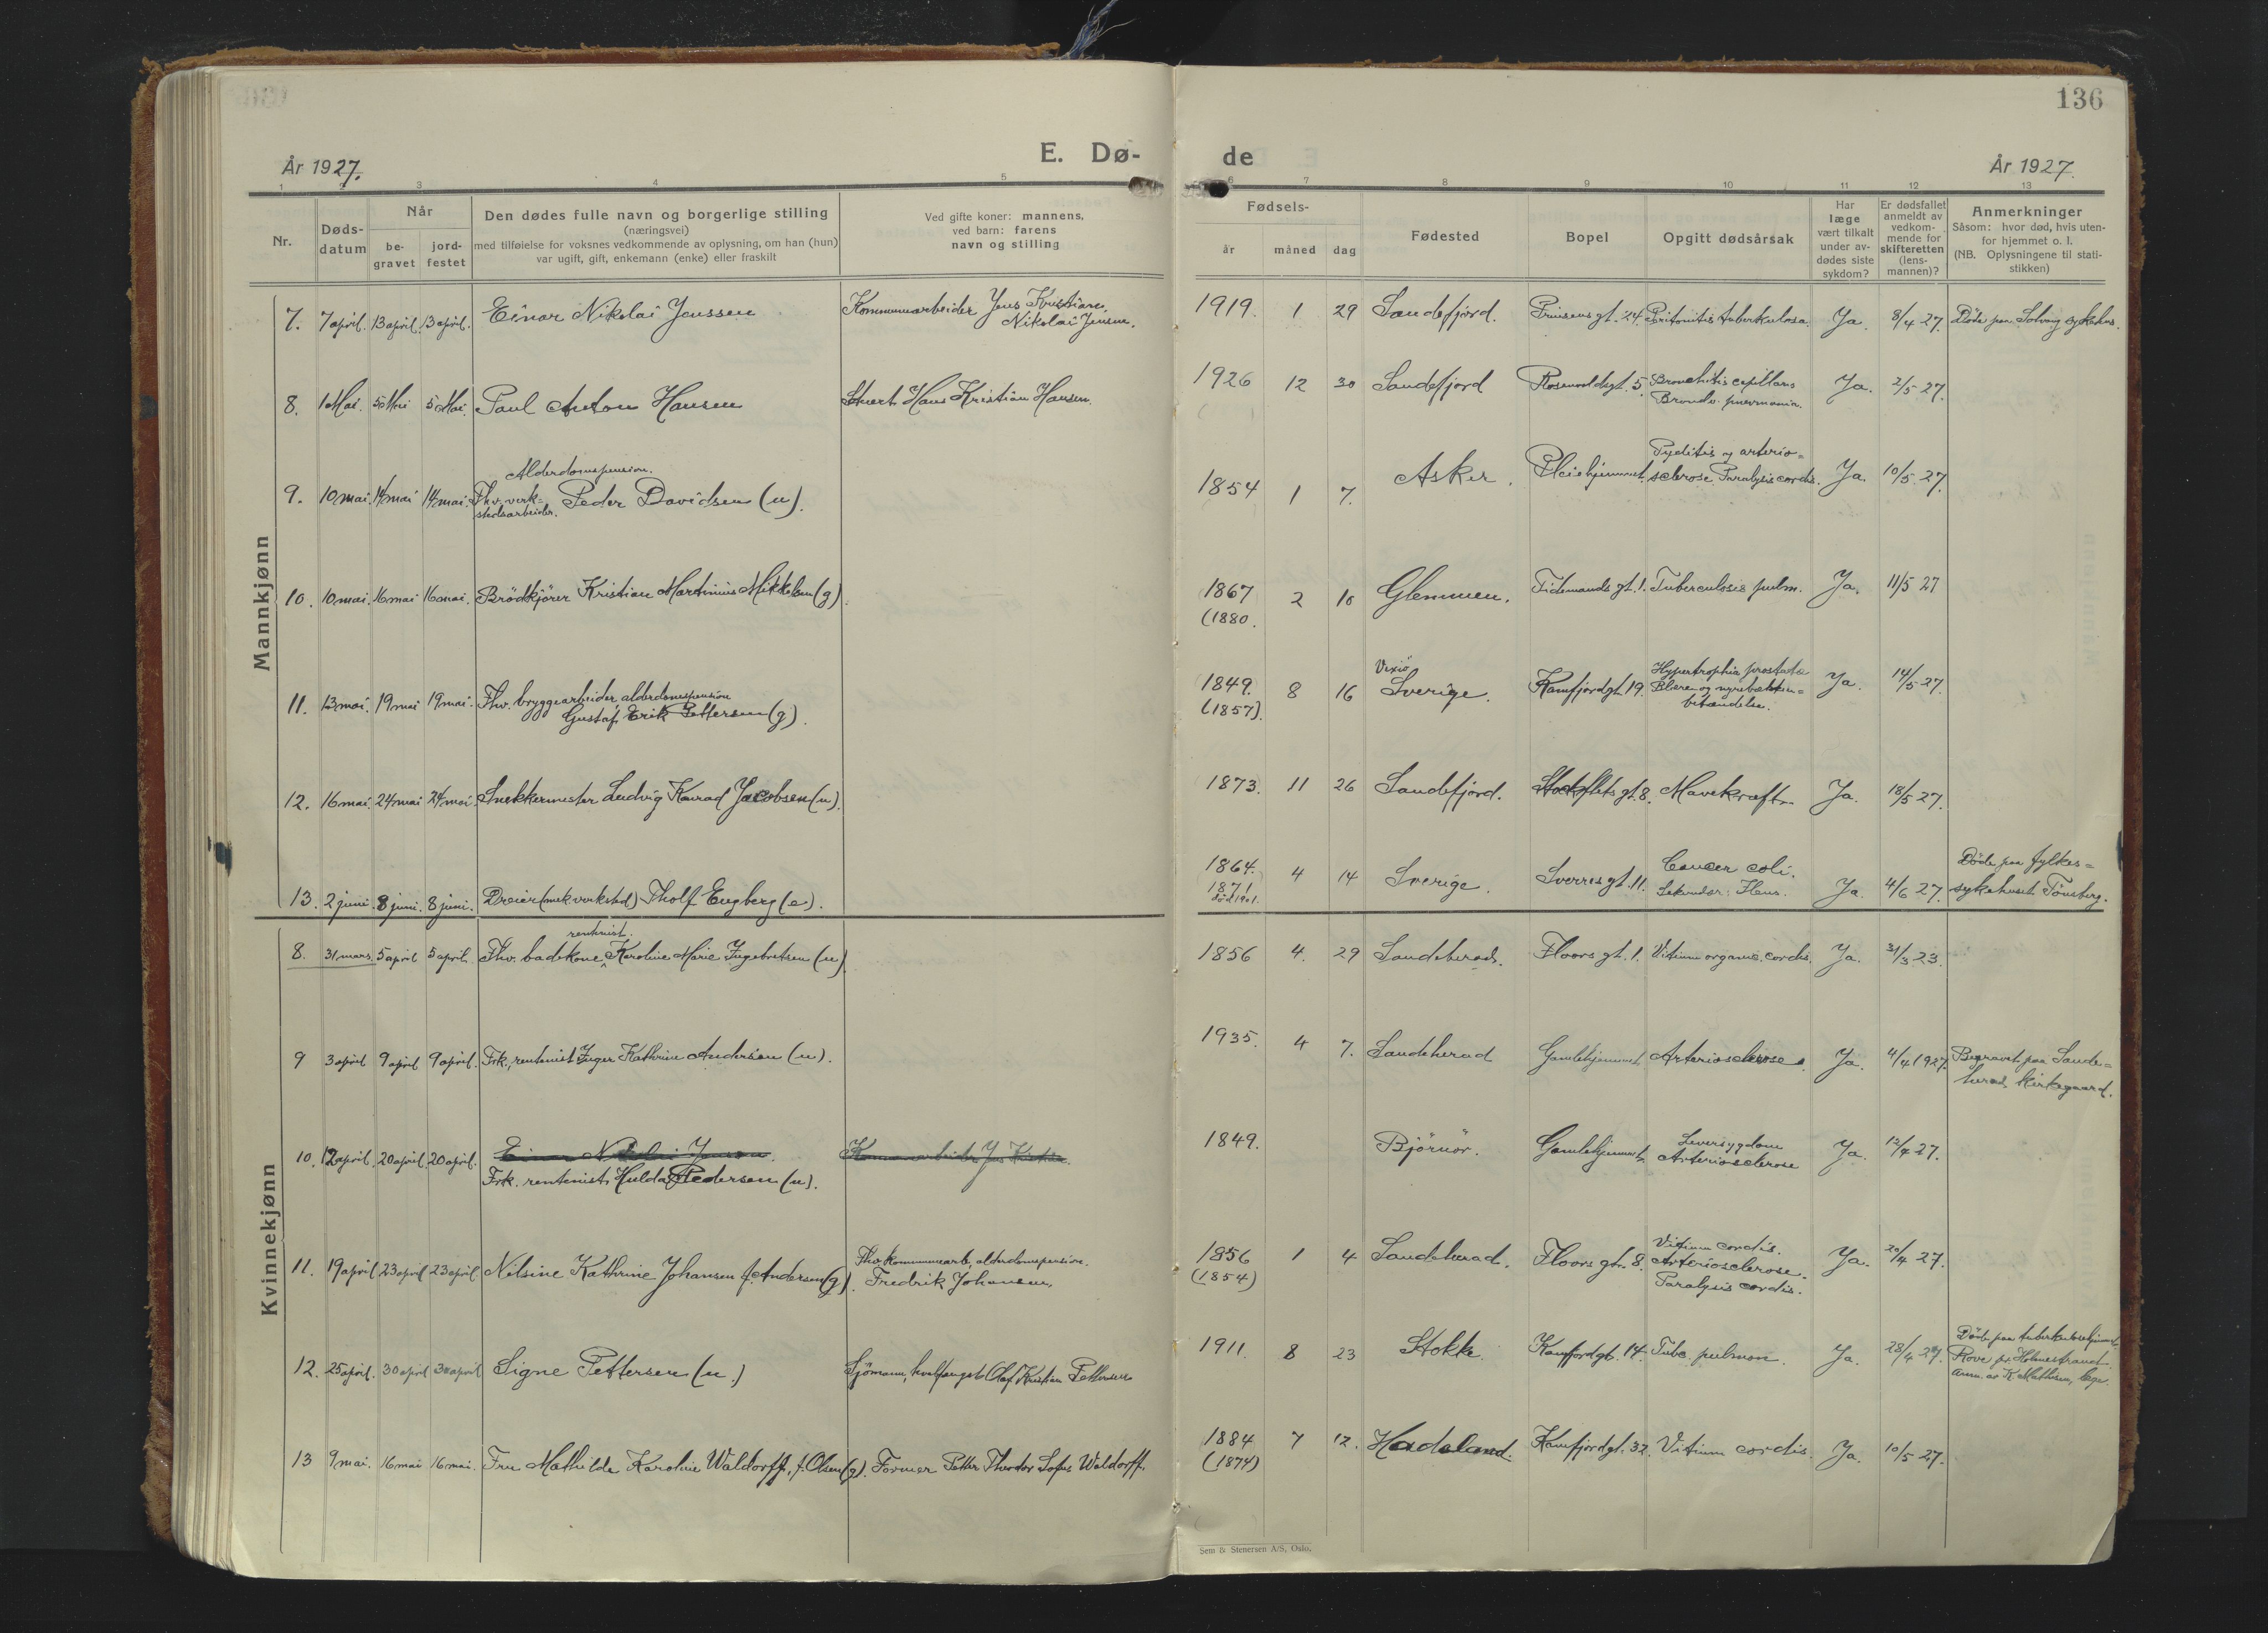 136
År 1927.
E. Dø-
de
År 1927.
1 2 3 4 5 6 7 8 9 10 11 12 13
Nr.
Døds-
datum
Når
be-
gravet
jord-
festet
Den dødes fulle navn og borgerlige stilling
(næringsvei)
med tilføielse for voksnes vedkommende av oplysning, om han (hun)
var ugift, gift, enkemann (enke) eller fraskilt
Ved gifte koner: mannens,
ved barn: farens
navn og stilling
Fødsels-
år
måned
dag
Fødested
Bopel
Opgitt dødsårsak
Har
læge
vært tilkalt
under av-
dødes siste
sykdom?
Er dødsfallet
anmeldt av
vedkom-
mende for
skifteretten
(lens-
mannen)?
Anmerkninger
Såsom: hvor død, hvis uten-
for hjemmet o. l.
(NB. Oplysningene til stati-
stikken)
Mannkjønn
7. 7 april. 13 april. 13 april. Einar Nikolai Jenssen
Kommunearbeider Jens Kristian
Nikolai Jensen.
1919. 1 29 Sandefjord. Prinsensgt. 24. Peritonitis tuberkulosa. Ja. 8/4 27. Døde paa Solvang sykehus.
8. 1 Mai. 5 Mai 5 Mai. Paul Anton Hansen
Stuert Hans Kristian Hansen.
1926 12 30 Sandefjord Rosenvoldsgt. 5. Bronchitis capillaris
Broncho pneumonia.
Ja. 2/5 27.
9. 10 mai. 14 mai 14 mai.
Alderdomspension.
Fhv. verk-
stedsarbeider.
Peder Davidsen (u).
1854 1 7. Asker. Pleiehjemmet.
Pyelitis og arterio-
sclerose. Paralysis cordis.
Ja. 10/5 27.
10. 10 mai. 16 mai 16 mai. Brödkjörer Kristian Martinius Mikkelsen (g).
1867
(1880.
2 10 Glemmen. Tidemands gt. 1. Tuberculosis pulm. Ja. 11/5 27
11. 13 mai. 19 mai 19 mai. Fhv. bryggearbeider, alderdomspension
Gustaf Erik Pettersen (g).
1849.
(1857).
8 16
Vexiö
Sverige.
Kamfjordgt. 19.
Hypertrophia prostata
Blære og nyrebækken-
betændelse.
Ja. 14/5 27.
12. 16 mai. 24 mai 24 mai. Snekkermester Ludvig Konrad Jacobsen (u).
1873. 11 26 Sandefjord. Stockflets gt. 8. Mavekræft. Ja. 18/5 27.
13. 2 juni. 8 juni. 8 juni. Dreier (mek verksted) Tholf Engberg (e).
1864.
1871.
död 1901.
4 14 Sverige. Sverres gt. 11.
Cancer coli.
Sekundær: Ileus.
Ja. 4/6 27.
Døde paa fylkes-
sykehuset Tönsberg.
Kvinnekjønn
8. 31 mars. 5 april 5 april.
rentenist.
Fhv. badekone Karoline Marie Ingebretsen (u)
1856 4. 29 Sandeherad. Floors gt. 1. Vitium organic. cordis. Ja. 31/3 23.
9 3 april 9 april 9 april. Frk., rentenist Inger Kathrine Andersen (u).
1935. 4 7. Sandeherad Gamlehjemmet Arteriosclerose. Ja. 4/4 1927.
Begravet paa Sande-
herad kirkegaard.
10. 12 april. 20 april. 20 april. Einar Nikolai Jensen.
Kommunearbeider Jens Kristian.
Frk. rentenist Hulda Pedersen (u).
1849. Björnör. Gamlehjemmet
Leversygdom
Arteriosclerose
Ja. 12/4 27.
11. 19 april 23 april 23 april Nilsine Kathrine Johansen f. Andersen (g).
Fhv. kommunearb., alderdomspension.
Fredrik Johansen.
1856
(1854)
1 4 Sandeherad. Floors gt. 8.
Vitium cordis.
Arteriosclerose.
Paralysis cordis.
Ja. 20/4 27.
12. 25 april. 30 april 30 april Signe Pettersen (u.)
Sjömann, hvalfangst Olaf Kristian Pettersen
1911. 8 23 Stokke. Kamfjordgt. 14. Tubc. pulmon. Ja. 28/4 27.
Döde paa tuberkulosehjemmet
Rove pr. Holmestrand.
Anm. av K Mathisen, læge.
13 9 mai. 16 mai 16 mai. Fru Mathilde Karoline Waldorff, f. Olsen (g). Former Petter Theodor Sofus Waldorff.
1884
(1874)
7 12. Hadeland. Kamfjordgt. 32. Vitium cordis. Ja. 10/5 27.
Sem & Stenersen A/S, Oslo.